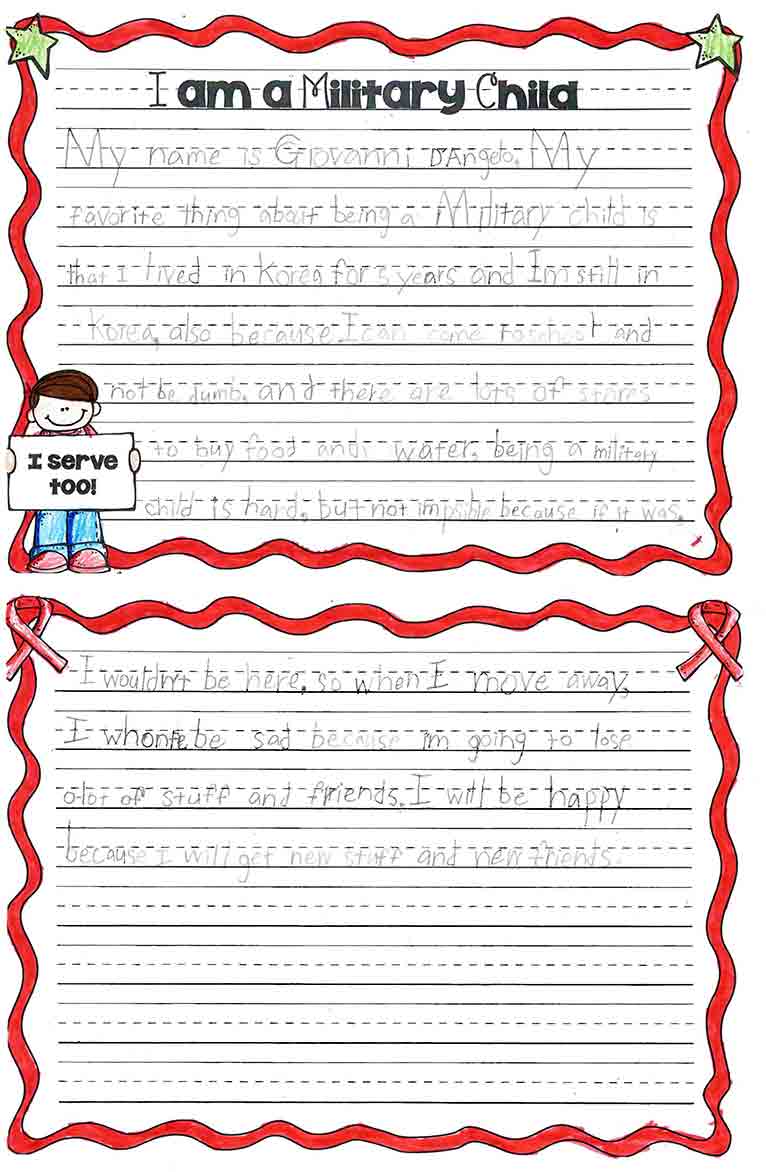 I am a Military Child
My name is Giovanni D'Angelo. My
favorite thing about being a Military child is
that I lived in Korea for 5 years and Im still in
Korea, also because I can come to school and
not be dumb, and there are lots of stores
to buy food and water, being a military
child is hard, but not impsible because if it was,
I serve
too!
I wouldn't be here, so when I move away,
I be sad because im going to lose
a lot of stuff and friends. I will be happy
because I will get new stuff and new friends.